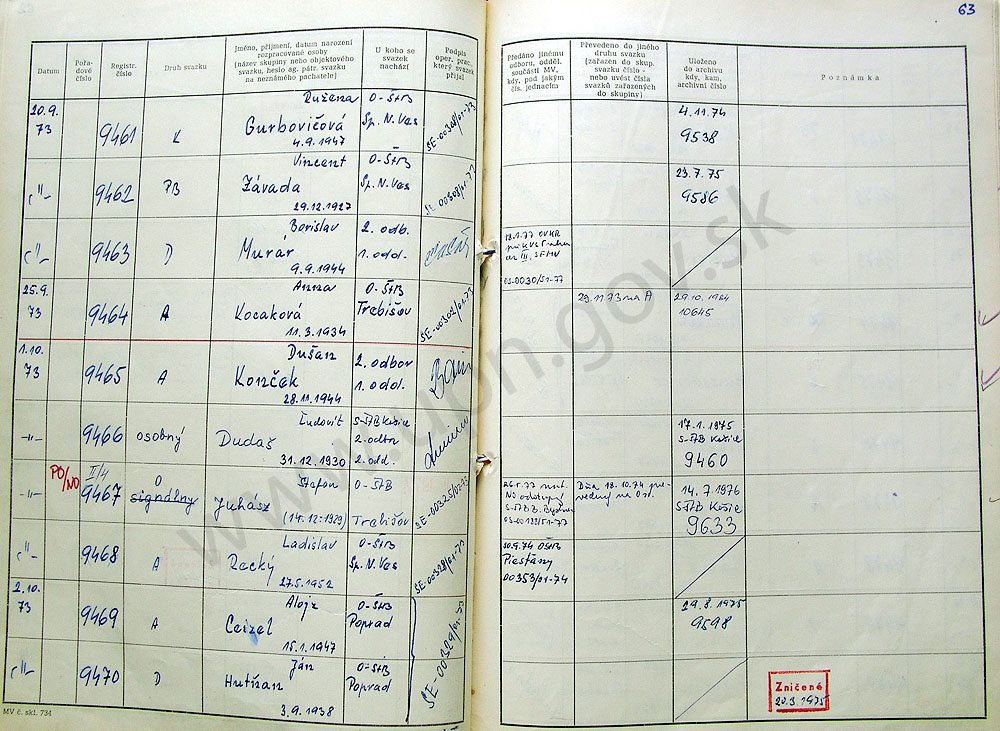 63
Datum
Pořadové číslo
Registr. číslo
Druh svazku
Jméno, příjmení, datum narození
rozpracované osoby
(název skupiny nebo objektového
svazku, heslo ag. pátr. svazku
na neznámého pachatele)
U koho se
svazek
nachází
Podpis
oper. prac.,
který svazek
přijal
Předáno jinému
odboru, odděl.
součásti MV,
kdy, pod jakým
čís. jednacím
Převedeno do jiného
druhu svazku
(zařazen do skup.
svazku číslo -
nebo uvést čísla
svazků zařazených
do skupiny)
Uloženo
do archivu
kdy, kam,
archivní číslo
Poznámka
20.9.
73
9461
K
Ružena
Gurbovičová
4.9.1947
O-ŠtB
Sp. N. Ves
ŠE-00308/01-73
4.11.74
9538
-"-
9462
PB
Vincent
Závada
29.12.1927
O-ŠtB
Sp. N. Ves
ŠE-00308/01-73
23.7.75
9586
-"-
9463
D
Borislav
Murár
9.9.1944
2. odb.
1. odd.
18.1.77
OS-0030/51-77
25.9.
73
9464
A
Anna
Kocaková
11.3.1934
O-ŠtB
Trebišov
ŠE-00302/01-73
29.11.73 na A
29.10.1984
10645
1.10.
73
9465
A
Dušan
Konček
28.11.1944
2. odbor
1. odd.
-"-
9466
osobný
Ľudovít
Dudaš
31.12.1930
S-ŠTB Košice
2. odbor
2. odd.
17.1.1975
S-ŠTB Košice
9460
-"-
PO/NO
II/4
9467
O
signálny
Štefan
Juhász
(14.12.1929)
O-ŠTB
Trebišov
ŠE-00325/01-73
Dňa 18.10.74 pre-
vedený na Os.
14.7.1976
S-ŠTB Košice
9633
-"-
9468
A
Ladislav
Recký
27.5.1952
O-ŠtB
Sp. N. Ves
ŠE-00328/01-73
OŠtB
Piešťany
00353/01-74
2.10.
73
9469
A
Alojz
Ceizel
15.1.1947
O-ŠtB
Poprad
ŠE-00329/01-73
29.8.1975
9598
-"-
9470
D
Ján
Hutňan
3.9.1938
O-ŠtB
Poprad
Zničené
20.3.1975
MV č. skl. 734
www.upn.gov.sk